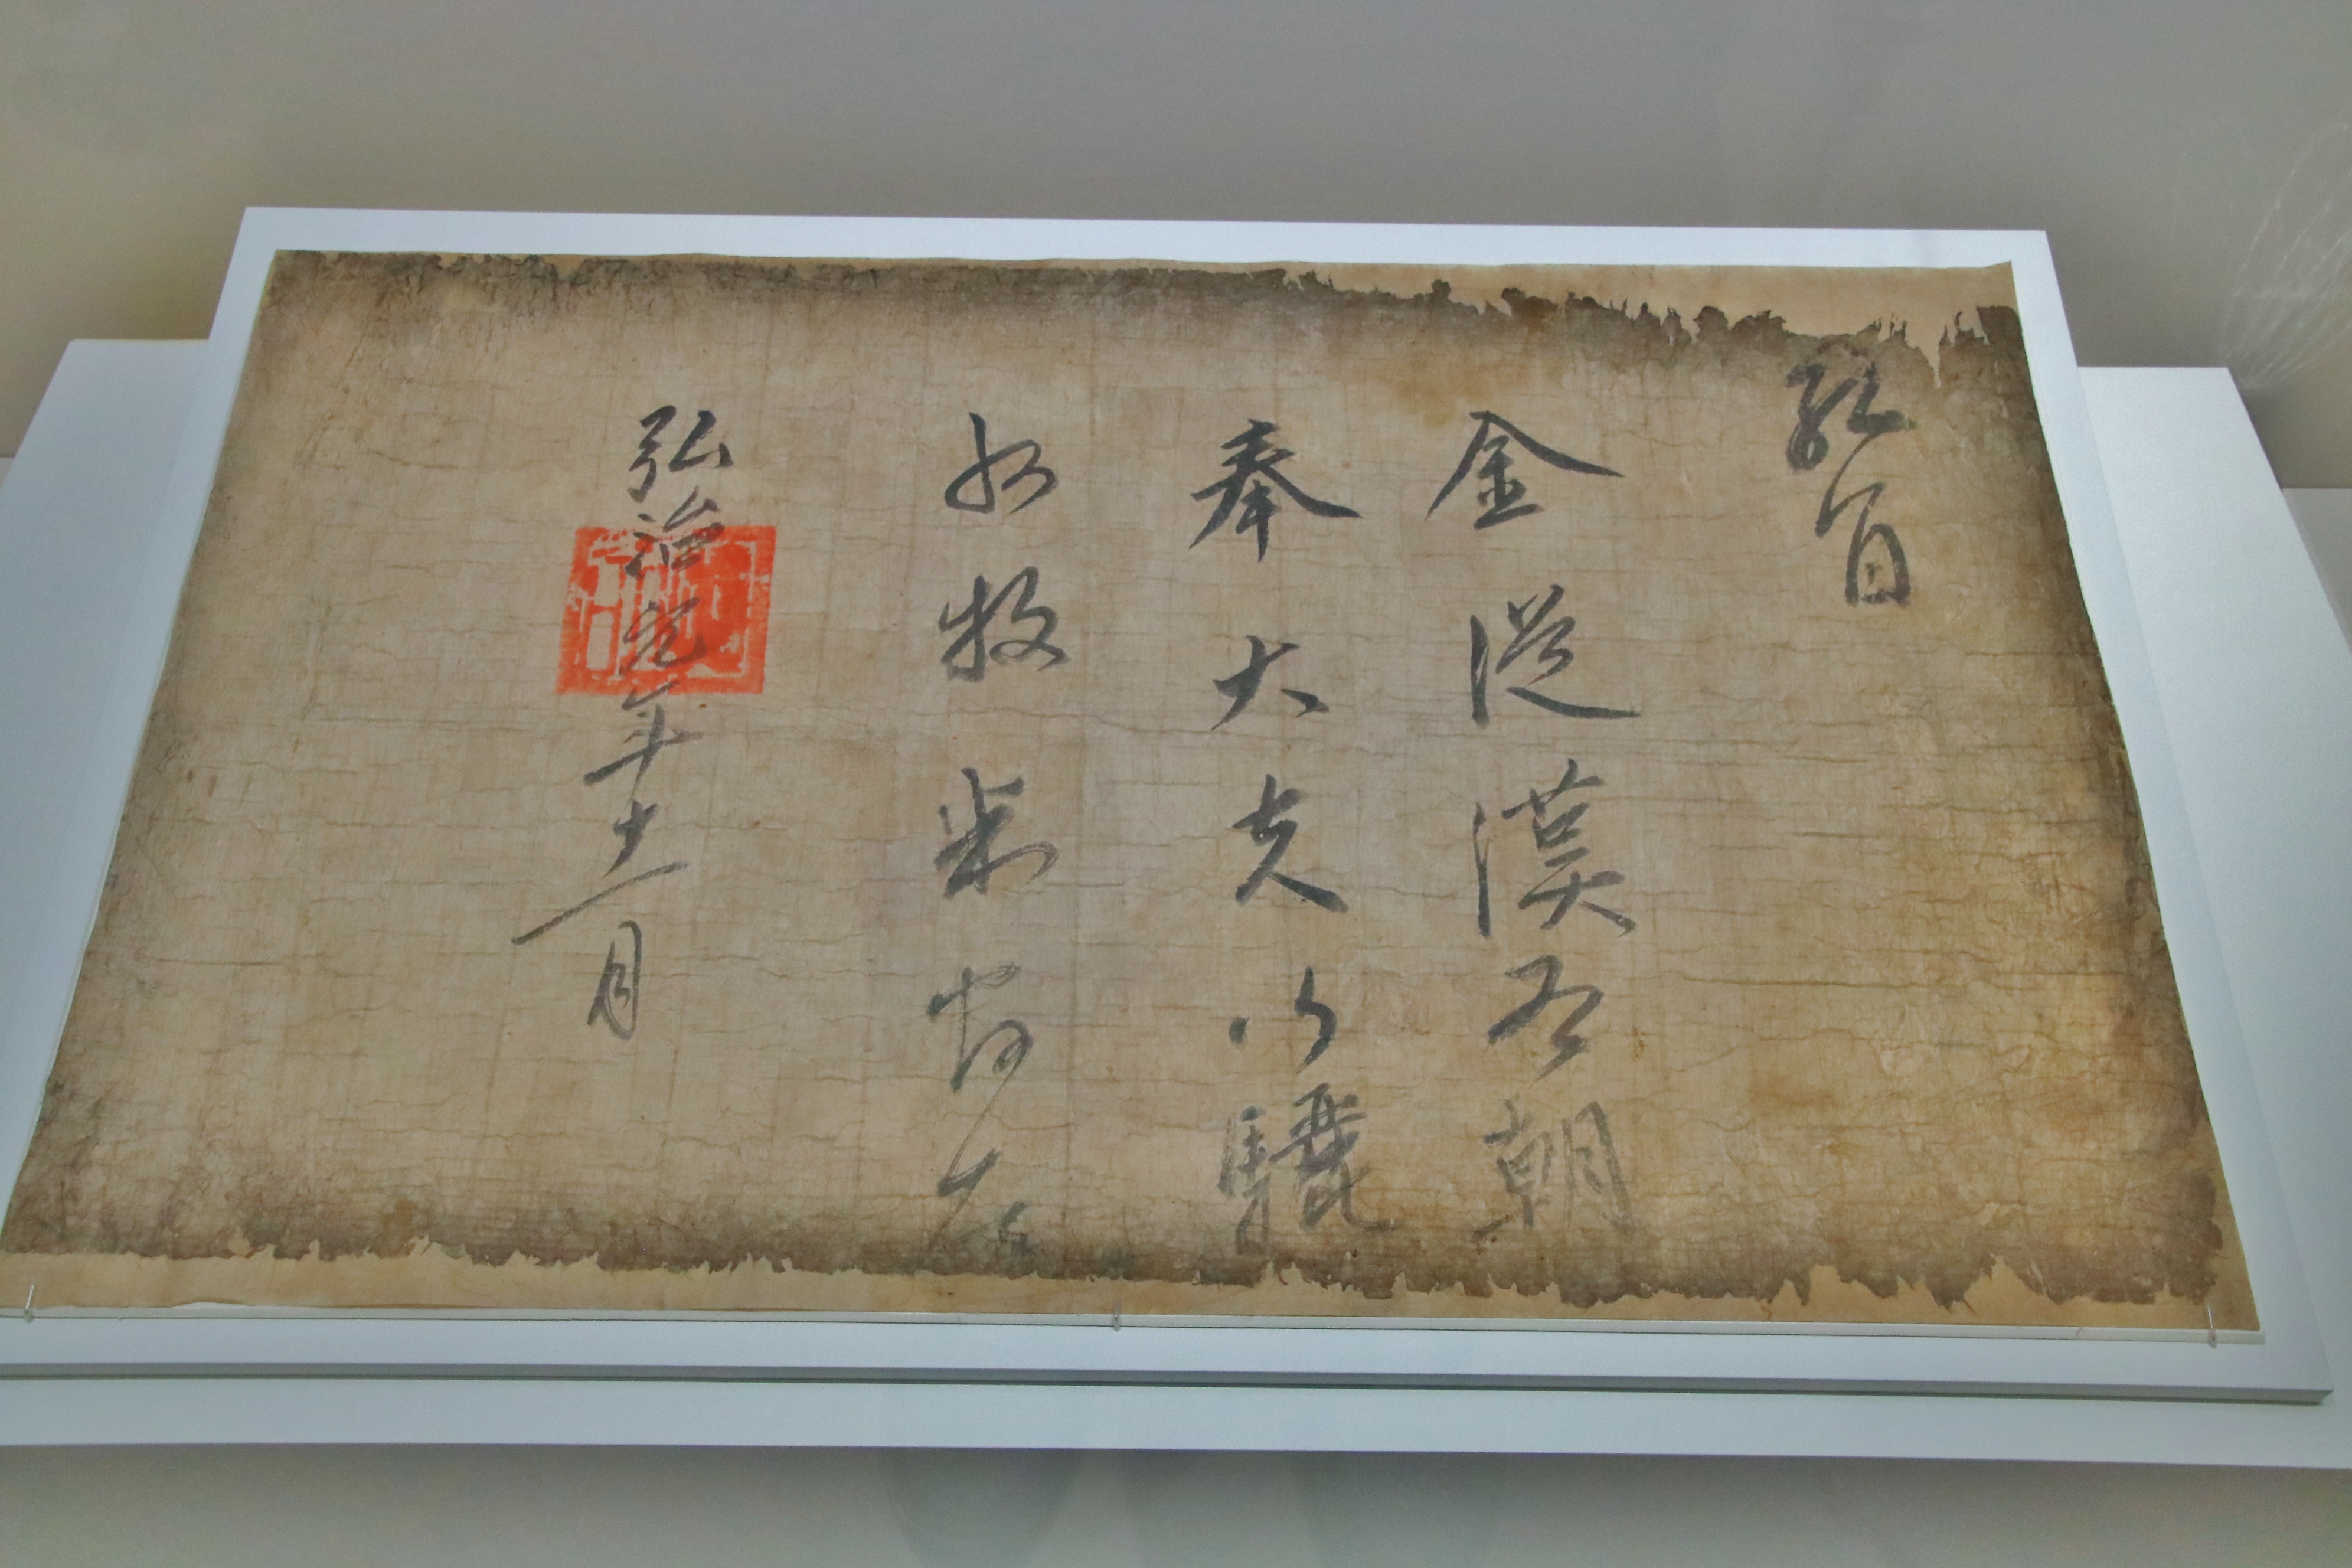 教旨
金從漢爲朝
奉大夫行驪
州牧判官者
弘治元年十一月